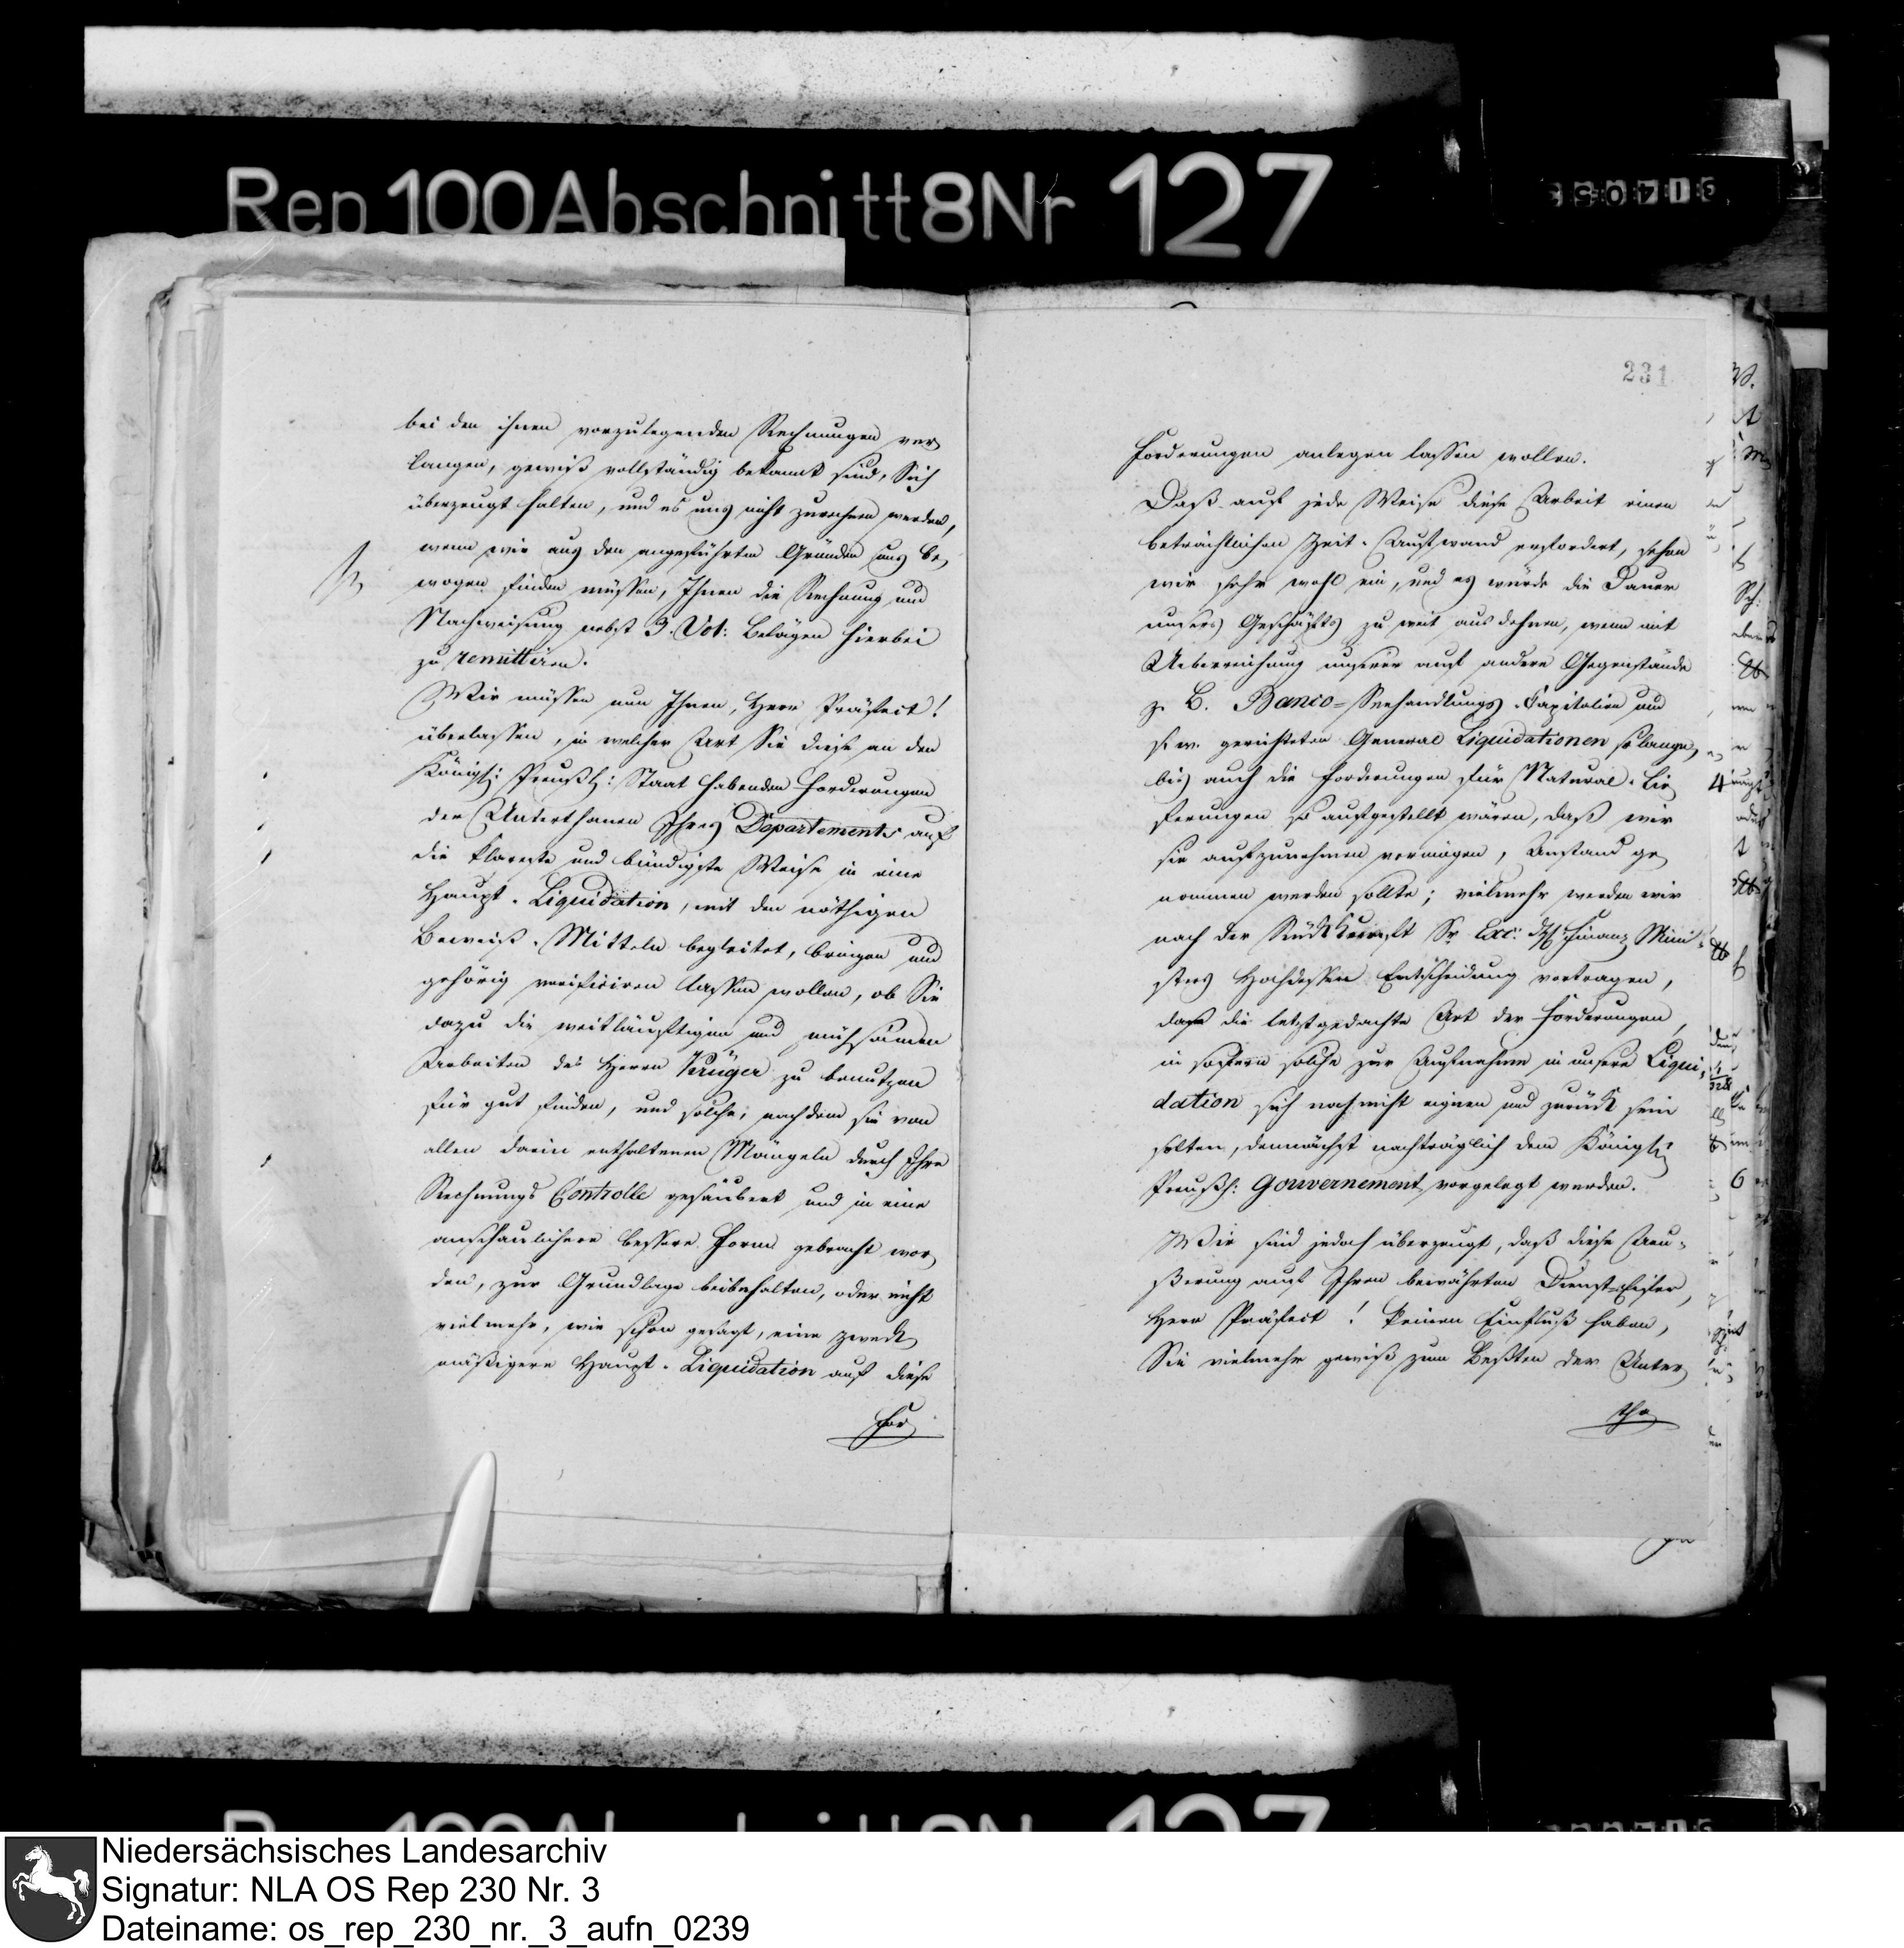 Rep 100 Abschnitt 8 Nr 127
bei den ihnen vorzulegenden Rechnungen ver
langen, gewiß vollständig bekannt sind, Sich
überzeugt halten, und es uns nicht zurechnen werden,
wenn wir aus den angeführten Gründen uns be
wogen finden müssen, Ihnen die Rechnung und
Nachweisung nebst 3. Vol: Belägen hierbei
zu remittiren.
Wir müssen nun Ihnen, Herr Präfect!
überlassen, in welcher Art Sie diese an den
Königl: Preußl: Staat habenden Forderungen
der Unterthanen Ihres Departements auf
die klareste und bündigste Weise in eine
Haupt-Liquidation, mit den nöthigen
Beweiß-Mitteln begleitet, bringen und
gehörig verificiren lassen wollen, ob Sie
dazu die weitläuftigen und mühsamen
Arbeiten des Herrn Krüger zu benutzen
für gut finden, und solche, nachdem sie von
allen darin enthaltenen Mängeln durch Ihre
Rechnungs Controlle gesäubert und in eine
anschaulichere bessere Form gebracht wor
den, zur Grundlage beibehalten, oder nicht
vielmehr, wie schon gesagt, eine zweck
mäßigere Haupt-Liquidation auf diese
For
231
Forderungen anlegen lassen wollen.
Daß auf jede Weise diese Arbeit einen
beträchtlichen Zeit-Aufwand erfordert, sehen
wir sehr wohl ein, und es würde die Dauer
unsers Geschäfts zu weit ausdehnen, wenn mit
Ueberreichung unserer auf andere Gegenstände
z. B. Banco-Seehandlungs-Capitalien und
s. w. gerichteten General Liquidationen so lange,
bis auch die Forderungen für Natural-Lie
ferungen so aufgestellt wären, daß wir
sie aufzunehmen vermögen, Anstand ge
nommen werden sollte; vielmehr werden wir
nach der Rückkunft Sr Exc: des Finanz Mini-
sters Hochdessen Entscheidung vortragen,
daß die letztgedachte Art der Forderungen,
in sofern solche zur Aufnahme in unsere Liqui-
dation sich noch nicht eignen und zurück sein
sollten, demnächst nachträglich dem Königl:
Preußl: Gouvernement vorgelegt werden.
Wir sind jedoch überzeugt, daß diese Aeu-
ßerung auf Ihren bewährten Dienst-Eifer,
Herr Präfect! keinen Einfluß haben,
Sie vielmehr gewiß zum Beßten der Unter
tha
Niedersächsisches Landesarchiv
Signatur: NLA OS Rep 230 Nr. 3
Dateiname: os_rep_230_nr._3_aufn_0239